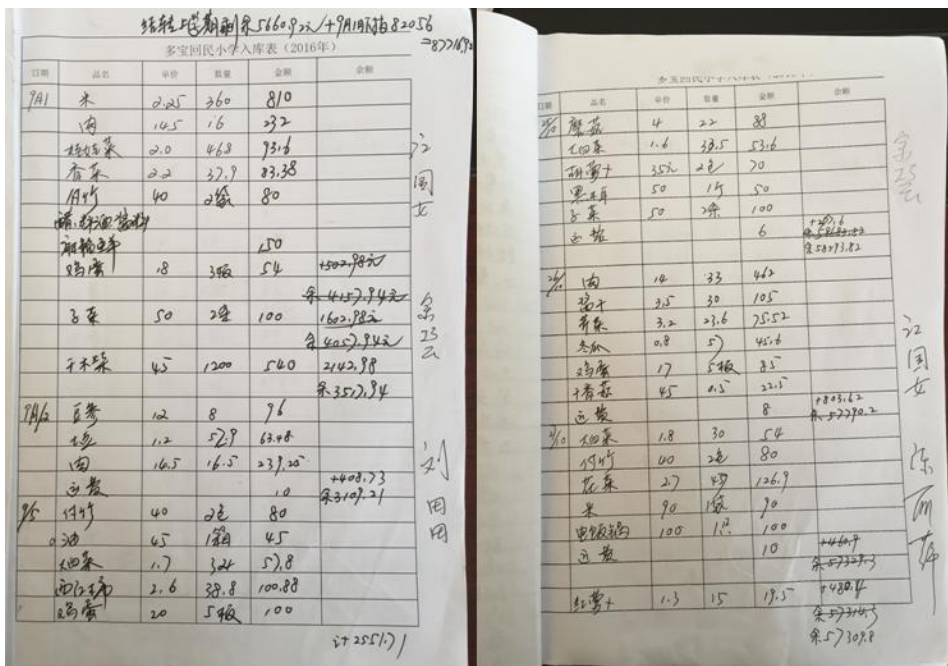 结转上学期剩余5660.92元+9月1日下指82056
=87716.92
多宝回民小学入库表（2016年）
日期 品名 单价 数量 金额 余额
9月1 米 2.25 360 810
肉 14.5 16 232
娃娃菜 2.0 46.8 93.6
香菜 2.2 37.9 83.38
付竹 40 2袋 80
150
鸡蛋 18 3板 54 +502.98元
余4157.94元
子菜 50 2 100 1602.98元
余4057.94元
干木柴 45 1200 540 2142.98
余3517.94
9月2 豆参 12 8 96
1.2 52.9 63.48
肉 14.5 16.5 239.25
运费 10 +408.73
余3109.21
9/5 付竹 40 2包 80
油 45 1箱 45
大白菜 1.7 34 57.8
西红柿 2.6 38.8 100.88
鸡蛋 20 5板 100
计+2551.71
江国女
金巧云
刘田田
多宝回民小学入库表
日期 品名 单价 数量 金额 余额
25/10 蘑菇 4 22 88
大白菜 1.6 33.5 53.6
胡萝卜 35元 2包 70
黑木耳 50 1斤 50
子菜 50 2 100
运费 6
余58293.82
26/10 肉 14 33 462
3.5 30 105
芹菜 3.2 23.6 75.52
冬瓜 0.8 57 45.6
鸡蛋 17 5板 85
干香菇 45 0.5 22.5
运费 8 +803.62
余57790.2
大白菜 1.8 30 54
付竹 40 2包 80
花菜 2.7 47 126.9
米 90 1袋 90
电饭锅 100 1只 100
运费 10 +460.9
余57329.3
红萝卜 1.3 15 19.5 +480.4
余57314.3
余57309.8
金巧云
江国女
陈